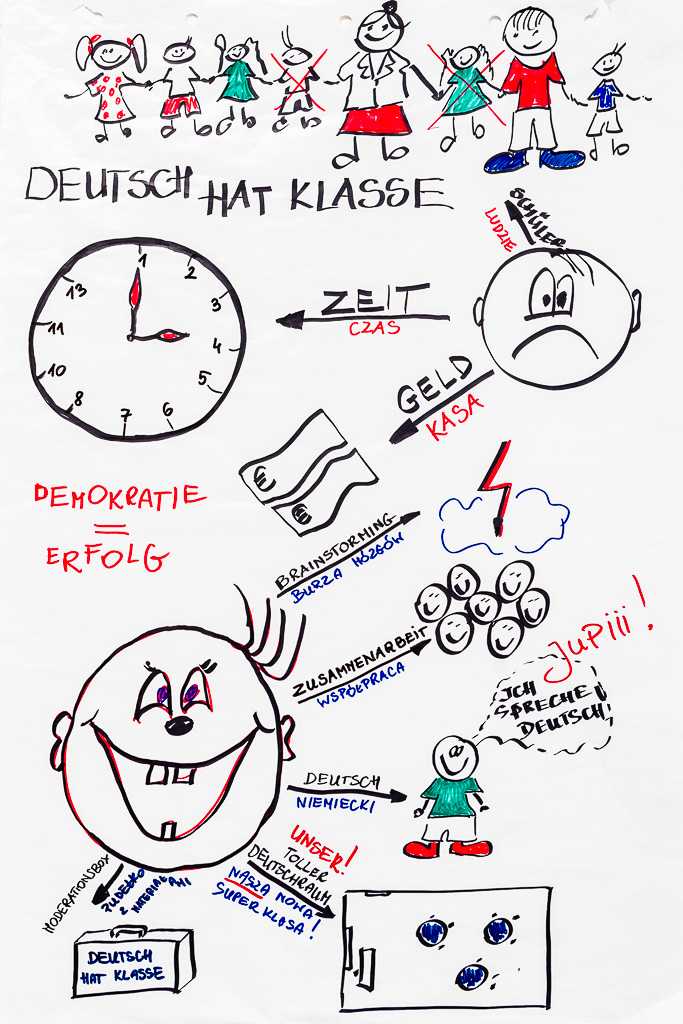 DEUTSCH HAT KLASSE
SCHÜLER
LUDZIE
ZEIT
CZAS
1
2
3
4
5
6
7
8
10
11
13
GELD
KASA
DEMOKRATIE
=
ERFOLG
BRAINSTORMING
BURZA MÓZGÓW
ZUSAMMENARBEIT
WSPÓŁPRACA
JUPiii!
ICH
SPRECHE
DEUTSCH!
DEUTSCH
NIEMIECKI
UNSER!
TOLLER
DEUTSCHRAUM
NASZA NOWA
SUPER KLASA!
MODERATIONSBOX
PUDEŁKO
Z MATERIAŁAMI
DEUTSCH
HAT KLASSE